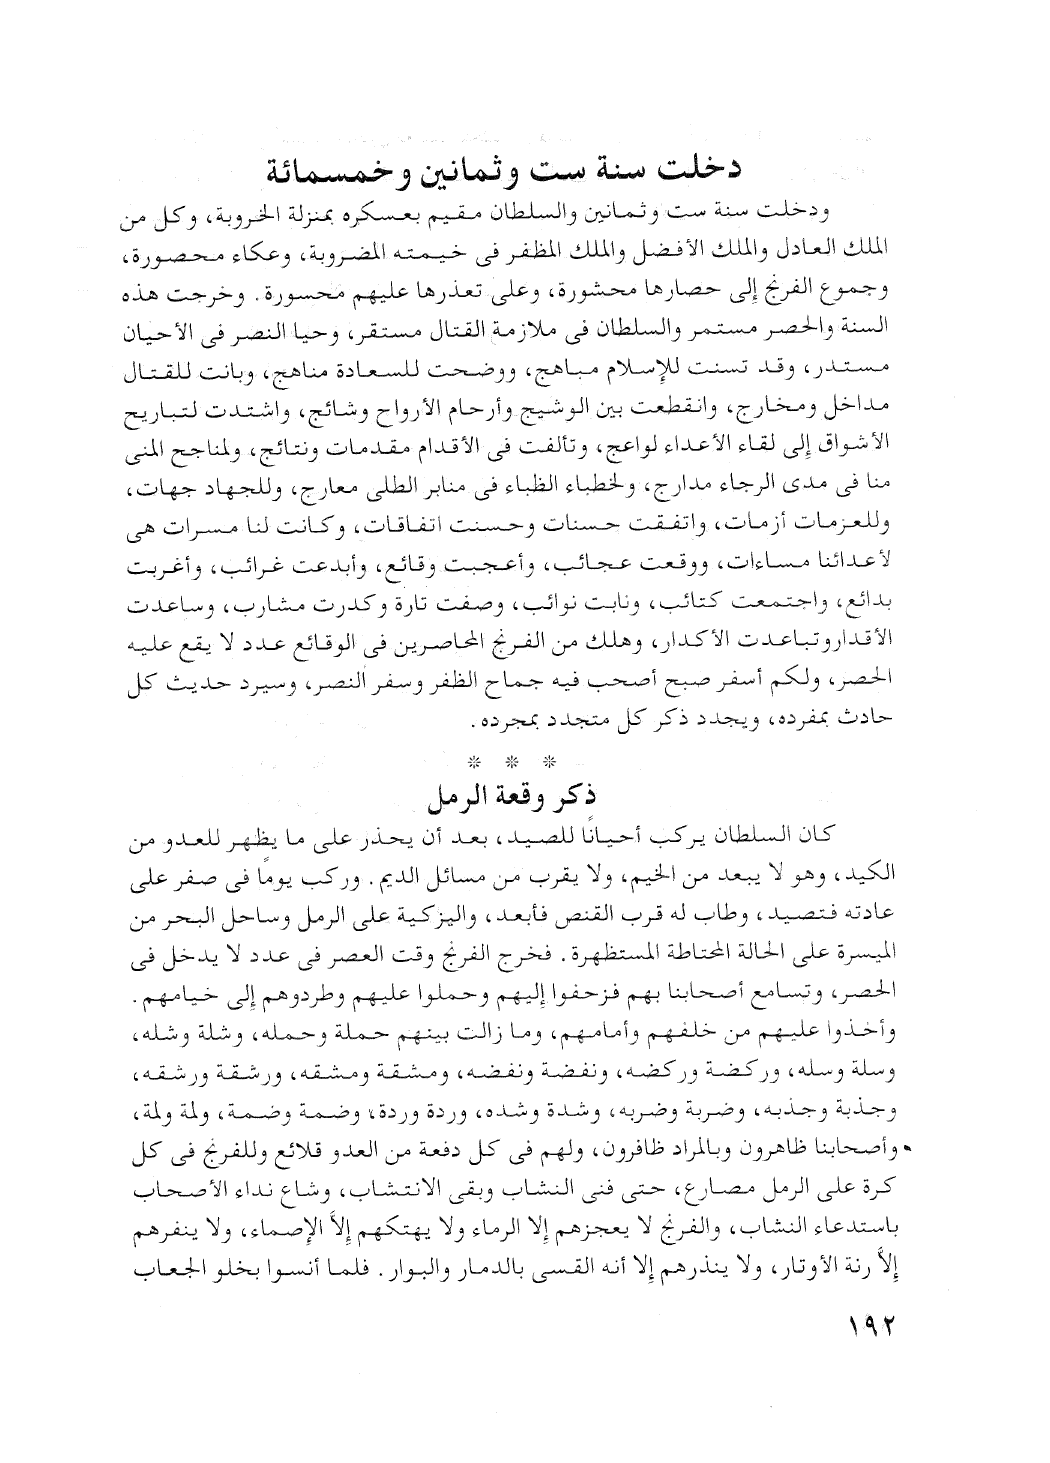 دخلت سنة ست وثمانين وخمسمائة
ودخلت سنة ست وثمانين والسلطان مقيم بعسكره بمنزلة الخروبة، وكل من
الملك العادل والملك الأفضل والملك المظفر فى خيمته المضروبة، وعكاء محصورة،
وجموع الفرنج إلى حصارها محشورة، وعلى تعذرها عليهم محسورة. وخرجت هذه
السنة والحصر مستمر والسلطان فى ملازمة القتال مستقر، وحيا النصر فى الأحيان
مستدر، وقد تسنت للإسلام مباهج، ووضحت للسعادة مناهج، وبانت للقتال
مداخل ومخارج، وانقطعت بين الوشيج وأرحام الأرواح وشائج، واشتدت لتباريح
الأشواق إلى لقاء الأعداء لواعج، وتألفت فى الأقدام مقدمات ونتائج، ولمناجح المنى
منا فى مدى الرجاء مدارج، ولخطباء الظباء فى منابر الطلى معارج، وللجهاد جهات،
وللعزمات أزمات، واتفقت حسنات وحسنت اتفاقات، وكانت لنا مسرات هى
لأعدائنا مساءات، ووقعت عجائب، وأعجبت وقائع، وأبدعت غرائب، وأغربت
بدائع، واجتمعت كتائب، ونابت نوائب، وصفت تارة وكدرت مشارب، وساعدت
الأقدار وتباعدت الأكدار، وهلك من الفرنج المحاصرين فى الوقائع عدد لا يقع عليه
الحصر، ولكم أسفر صبح أصحب فيه جماح الظفر وسفر النصر، وسيرد حديث كل
حادث بمفرده، ويجدد ذكر كل متجدد بمجرده.
* * *
ذكر وقعة الرمل
كان السلطان يركب أحيانًا للصيد، بعد أن يحذر على ما يظهر للعدو من
الكيد، وهو لا يبعد من الخيم، ولا يقرب من مسائل الديم. وركب يومًا فى صفر على
عادته فتصيد، وطاب له قرب القنص فأبعد، واليزكية على الرمل وساحل البحر من
الميسرة على الحالة المحتاطة المستظهرة. فخرج الفرنج وقت العصر فى عدد لا يدخل فى
الحصر، وتسامع أصحابنا بهم فزحفوا إليهم وحملوا عليهم وطردوهم إلى خيامهم.
وأخذوا عليهم من خلفهم وأمامهم، وما زالت بينهم حملة وحمله، وشلة وشله،
وسلة وسله، وركضة وركضه، ونفضة ونفضه، ومشقة ومشقه، ورشقة ورشقه،
وجذبة وجذبه، وضربة وضربه، وشدة وشده، وردة وردة، وضمة وضمة، ولمة ولمة،
وأصحابنا ظاهرون وبالمراد ظافرون، ولهم فى كل دفعة من العدو قلائع وللفرنج فى كل
كرة على الرمل مصارع، حتى فنى النشاب وبقى الانتشاب، وشاع نداء الأصحاب
باستدعاء النشاب، والفرنج لا يعجزهم إلا الرماء ولا يهتكهم إلاَّ الإصماء، ولا ينفرهم
إلاَّ رنة الأوتار، ولا ينذرهم إلا أنه القسى بالدمار والبوار. فلما أنسوا بخلو الجعاب
١٩٢